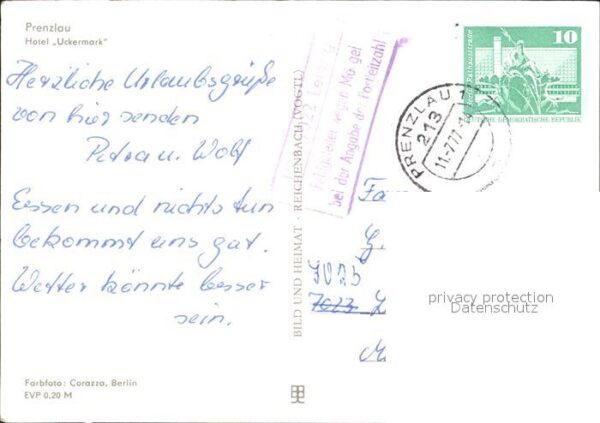 Prenzlau
Hotel „Uckermark"
Herzliche Urlaubsgrüße
von hier senden
Petra u. Wolf
Essen und nichts tun
bekommt uns gut.
Wetter könnte besser
sein.
Farbfoto: Corazza, Berlin
EVP 0,20 M
BILD UND HEIMAT · REICHENBACH (VOGTL)
7022
wegen Mängel
bei der Angabe der Postleitzahl
PRENZLAU 1
213
11.-7.77
10
DEUTSCHE DEMOKRATISCHE REPUBLIK
Fa
7025
7023 L
privacy protection
Datenschutz